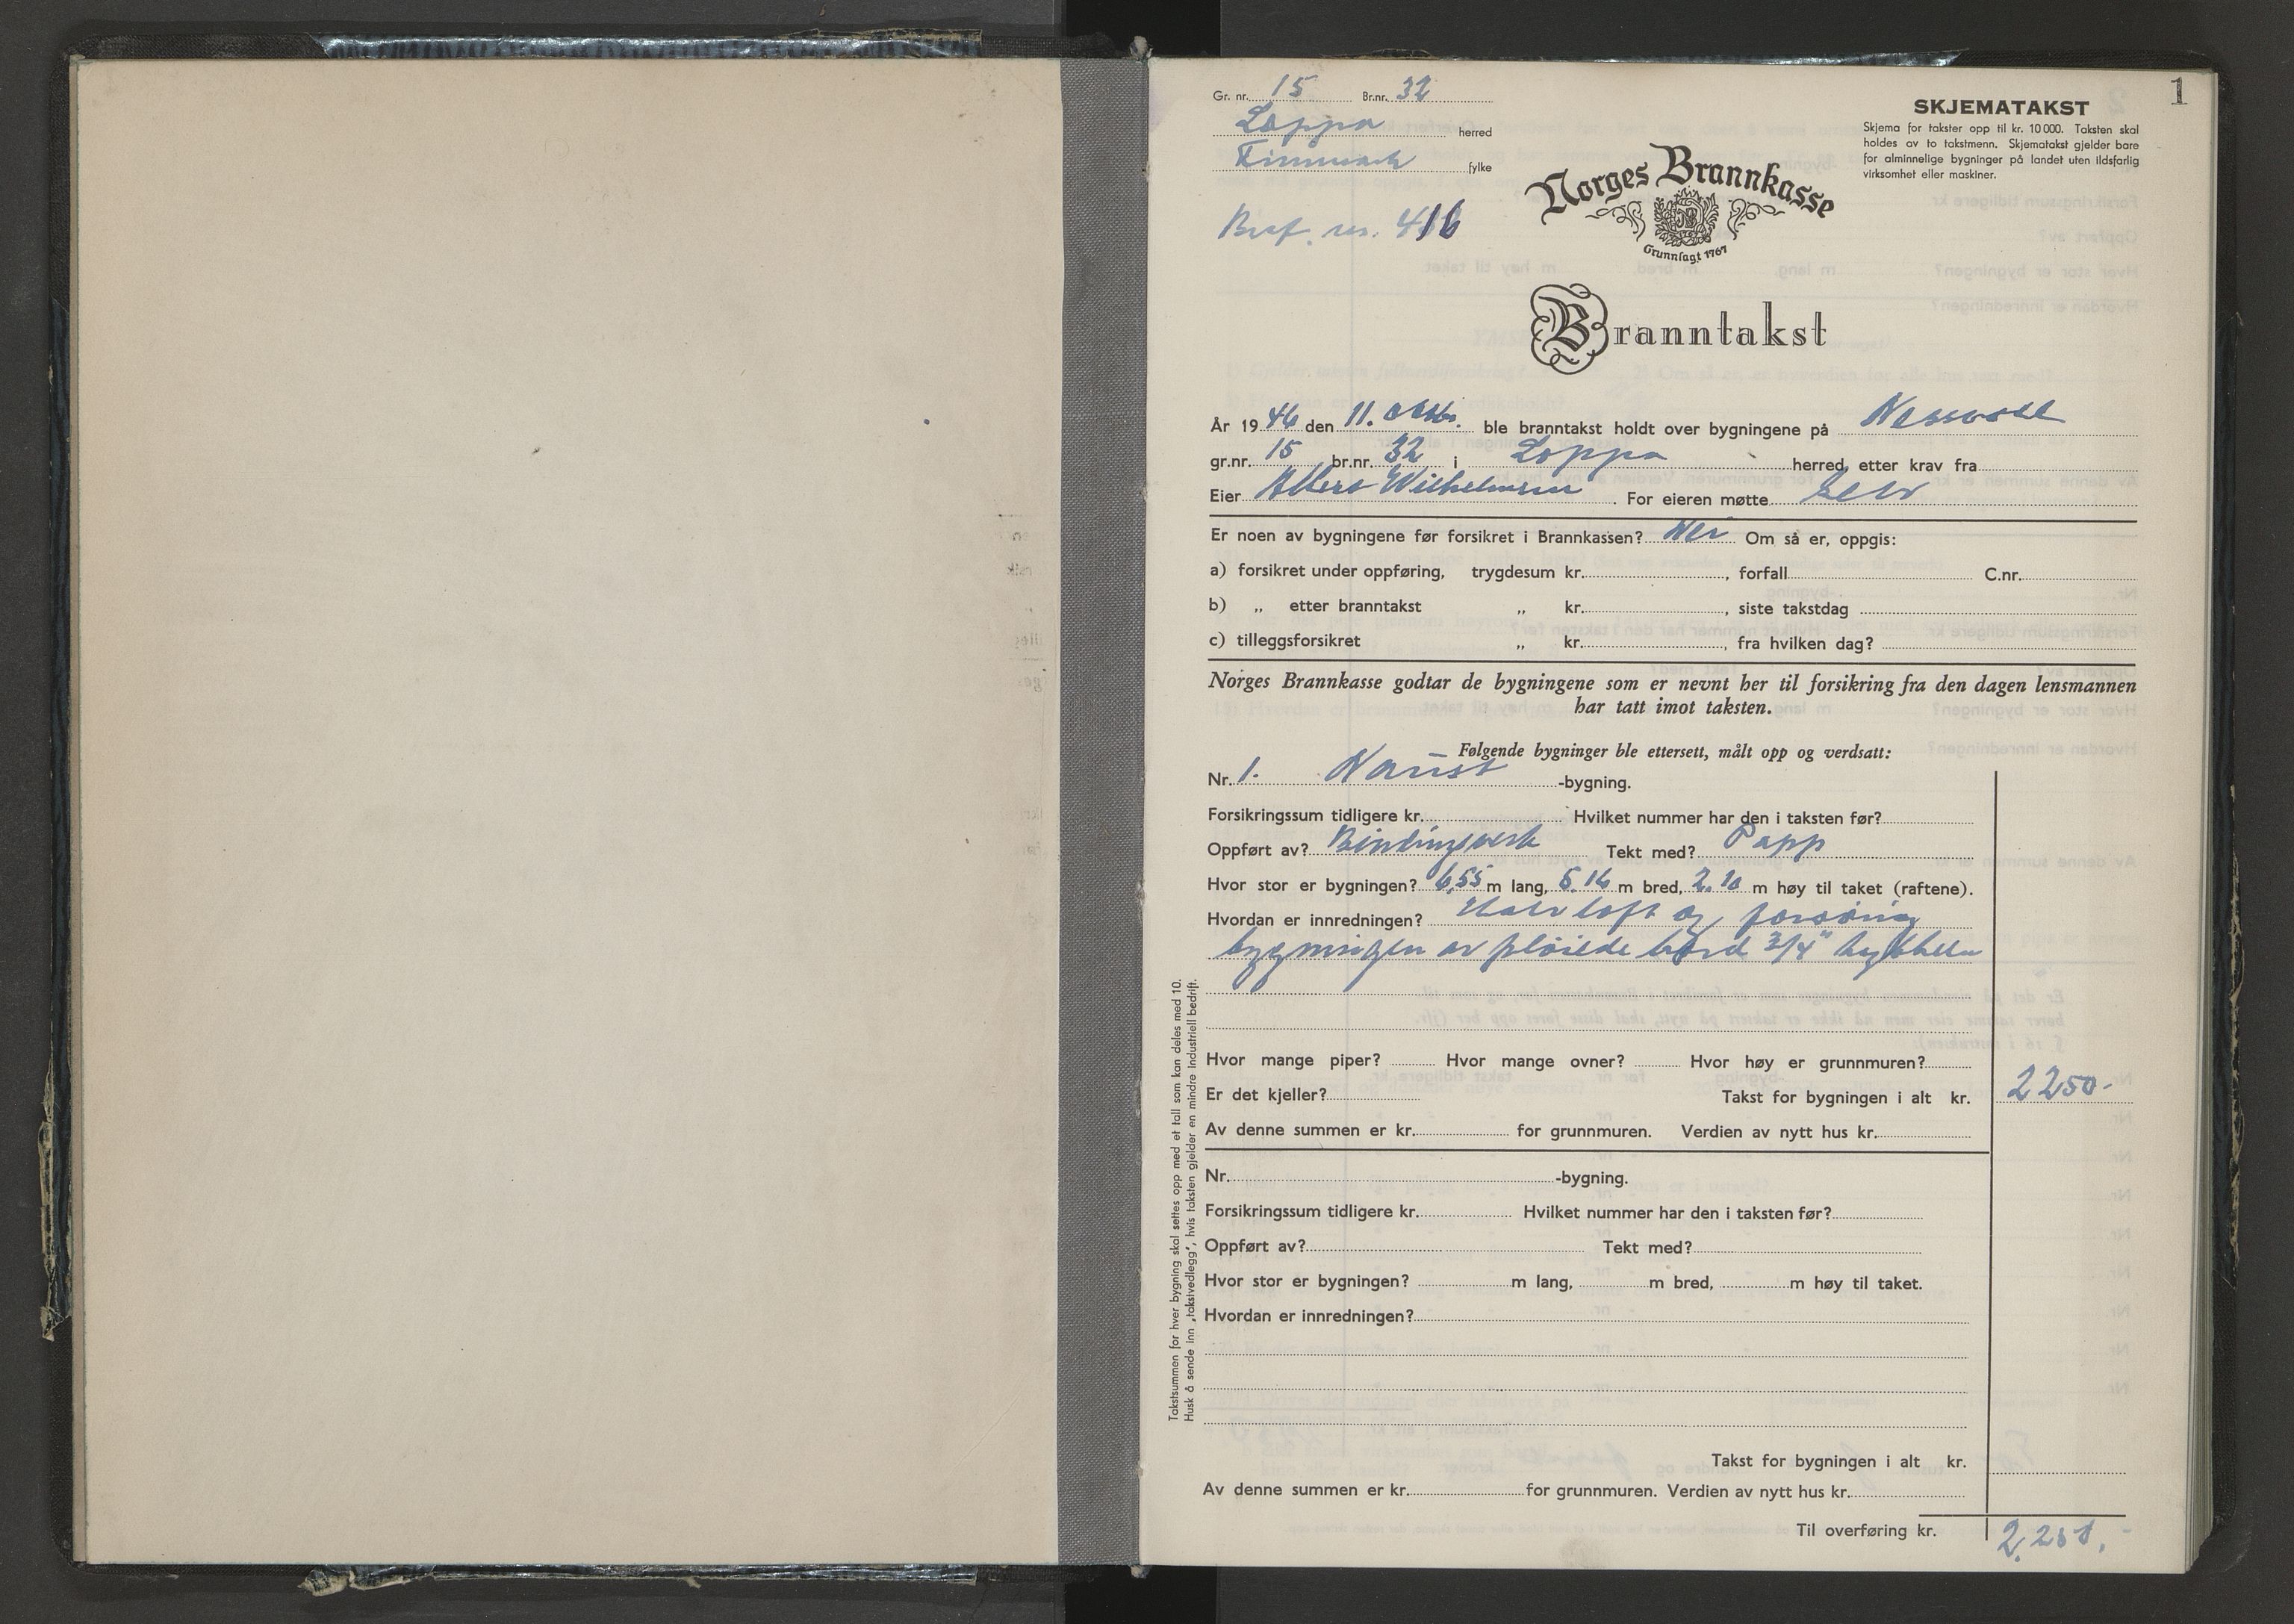 1
Gr. nr. 15 Br.nr. 32
Loppa herred
Finnmark fylke
416
SKJEMATAKST
Skjema for takster opp til kr. 10 000. Taksten skal
holdes av to takstmenn. Skjematakst gjelder bare
for alminnelige bygninger på landet uten ildsfarlig
virksomhet eller maskiner.
Norges Brannkasse
Grunnlagt 1767
Branntakst
År 1946 den 11. oktbr. ble branntakst holdt over bygningene på
gr.nr. 15 br.nr. 32 i Loppa herred, etter krav fra
Eier Albert Wilhelmsen. For eieren møtte selv
Er noen av bygningene før forsikret i Brannkassen? Nei Om så er, oppgis:
a) forsikret under oppføring, trygdesum kr. , forfall C.nr.
b) „ etter branntakst „ kr. , siste takstdag
c) tilleggsforsikret „ kr. , fra hvilken dag?
Norges Brannkasse godtar de bygningene som er nevnt her til forsikring fra den dagen lensmannen
har tatt imot taksten.
Følgende bygninger ble ettersett, målt opp og verdsatt:
Nr. 1. Naust -bygning.
Forsikringssum tidligere kr. Hvilket nummer har den i taksten før?
Oppført av? Bindingsverk Tekt med? Papp
Hvor stor er bygningen? 6,55 m lang, 5.16 m bred, 2.10 m høy til taket (raftene).
Hvordan er innredningen? Halvloft og forøvrig
bygningen av pløiede bord 3/4"
Hvor mange piper? Hvor mange ovner? Hvor høy er grunnmuren?
Er det kjeller? Takst for bygningen i alt kr. 2250.-
Av denne summen er kr. for grunnmuren. Verdien av nytt hus kr.
Nr. -bygning.
Forsikringssum tidligere kr. Hvilket nummer har den i taksten før?
Oppført av? Tekt med?
Hvor stor er bygningen? m lang, m bred, m høy til taket.
Hvordan er innredningen?
Takst for bygningen i alt kr.
Av denne summen er kr. for grunnmuren. Verdien av nytt hus kr.
Til overføring kr. 2.250,-
Takstsummen for hver bygning skal settes opp med et tall som kan deles med 10.
Husk å sende inn „takstvedlegg", hvis taksten gjelder en mindre industriell bedrift.